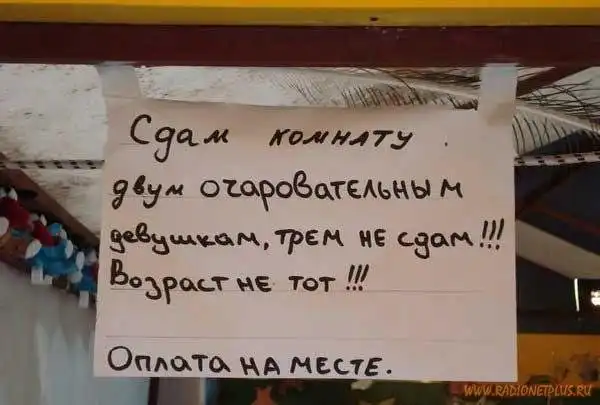 Сдам комнату.
двум очаровательным
девушкам, трем не сдам!!!
Возраст не тот!!!
Оплата на месте.
WWW.RADIONETPLUS.RU